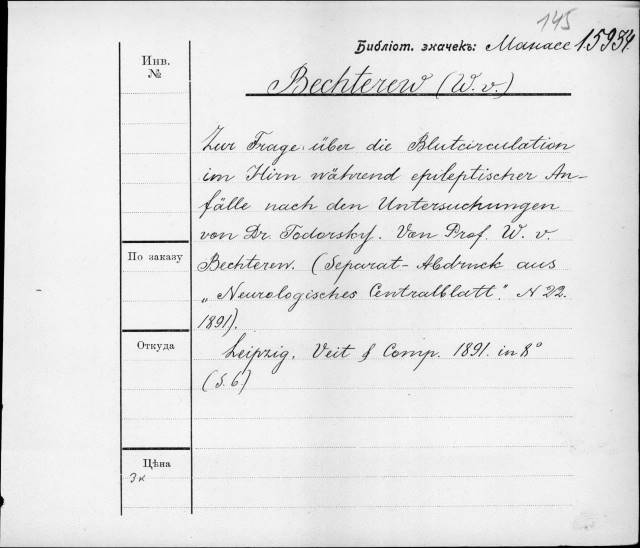 145
Библіот. значекъ: Манасс 15934.
Инв.
№
Bechterew (W. v.)
Zur Frage über die Blutcirculation
im Hirn während epileptischer An-
fälle nach den Untersuchungen
von Dr. Todorsky. Von Prof. W. v.
По заказу
Bechterew. (Separat-Abdruck aus
„Neurologisches Centralblatt". N 22.
1891).
Откуда
Leipzig. Veit & Comp. 1891. in 8°
(S. 6)
Цѣна
3к